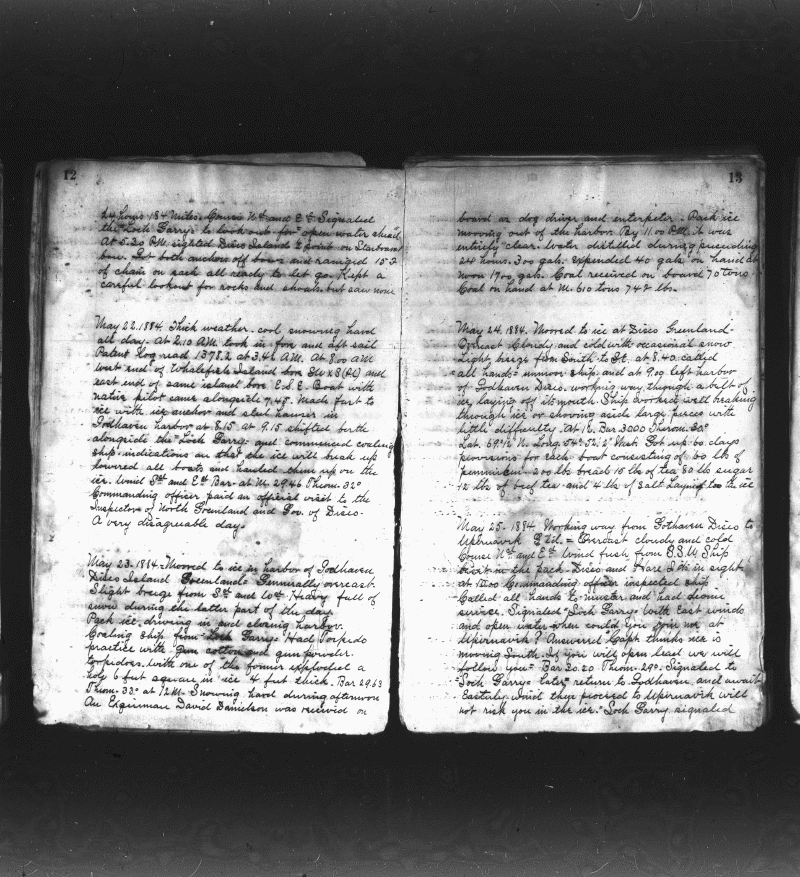 12
by Log is 184 Miles. Course Nd and Ed Signaled
the "Loch Garry" to look out for open water ahead
At 5.30 P.M. sighted Disco Island 2 points on Starboard
bow. Got both anchors off bows and ranged 15 F
of chain on each all ready to let go. Kept a
careful lookout for rocks and shoals but saw none
May 22. 1884. Thick weather. cool snowing hard
all day. At 2.10 A.M. took in fore and aft sail
Patent Log read 1378.2 at 3.46 A.M. At 8.00 A.M
west end of Whalefish Island bore
east end of same island bore E.S.E. Boat with
native pilot came alongside 7.45. Made fast to
ice with ice anchor and steel hawser in
Godhaven harbor at 8.15 At 9.15 shifted berth
alongside the "Loch Garry" and commenced coaling
ship. indications are that the ice will break up
lowered all boats and hauled them up on the
ice. Wind Sd and Ed Bar. at M. 29.46 Thom. 32°
Commanding officer paid an official visit to the
Inspector of North Greenland and Gov. of Disco.
A very disagreeable day.
May 23. 1884. Moored to ice in harbor of Godhaven
Disco Island Greenland. Generally overcast.
Slight breeze from Sd and Wd. Heavy fall of
snow during the latter part of the day
Pack ice driving in and closing harbor.
Coaling ship from Loch Garry. Had Torpedo
practice with gun cotton and gun powder
torpedoes. with one of the former exploded a
hole 6 feet square in ice 4 feet thick. Bar 29.63
Thom. 33° at 12 M. Snowing hard during afternoon
An Esquimau David Danielson was received on
13
board as dog driver and interpeter. Pack ice
moving out of the harbor By 11.00 P.M. it was
entirely clear. Water distilled during preceeding
24 hours. 300 gals. expended 40 gals. on hand at
noon 1700 gals. Coal received on board 70 tons
Coal on hand at M. 610 tons 748 lbs.
May 24. 1884. Moored to ice at Disco Greenland-
Overcast Cloudy and cold with occasional snow
Light breeze from South to at 8.40 called
all hands unmoor ship. and at 9.09 left harbor
of Godhaven Disco. working way through a belt of
ice laying off its mouth. Ship worked well breaking
through ice or shoving aside large pieces with
little difficulty. At M. Bar. 30.00 Therom. 30°
Lat. 69°.12' N. Long. 54°.52'.2" West. Got up 60 days
provisions for each boat consisting of 60 lbs of
pemmican. 200 lbs bread 15 lbs of tea 80 lbs sugar
12 lbs of beef tea and 4 lbs of salt Laying to in ice
May 25. 1884. Working way from Gothaven Disco to
Upernavik Overcast cloudy and cold
Course Nd and Ed Wind fresh from S.S.W. Ship
in the pack. Disco and Hare Id in sight
at 10.00 Commanding officer inspected ship
Called all hands to muster and had devine
service. Signaled "Loch Garry" With East winds
and open water when could you join me at
Upernavik? Answered "Capt. thinks ice is
moving South. If you will open lead we will
follow you" Bar 30.20 Thom. 29°. Signaled to
"Loch Garry" later "return to Godhaven and await
Easterly wind then proceed to Upernavik will
not risk you in the ice." Loch Garry signaled